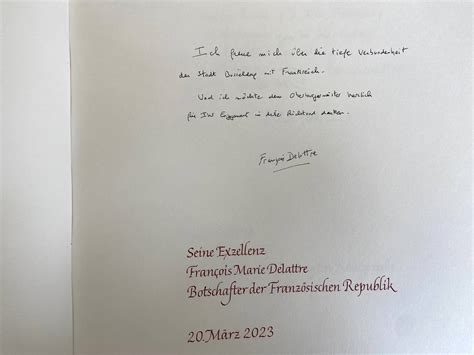 Ich freue mich über die tiefe Verbundenheit
der Stadt Duisburg mit Frankreich.
Und ich möchte dem Oberbürgermeister herzlich
für Ihr Engagement in diese Richtung danken.
François Delattre
Seine Exzellenz
François Marie Delattre
Botschafter der Französischen Republik
20. März 2023